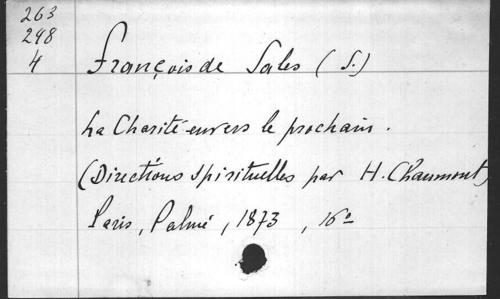 263
298
4
François de Sales (S.)
La Charité envers le prochain.
(Directions spirituelles par H. Chaumont)
Paris, Palmé, 1873, 16º